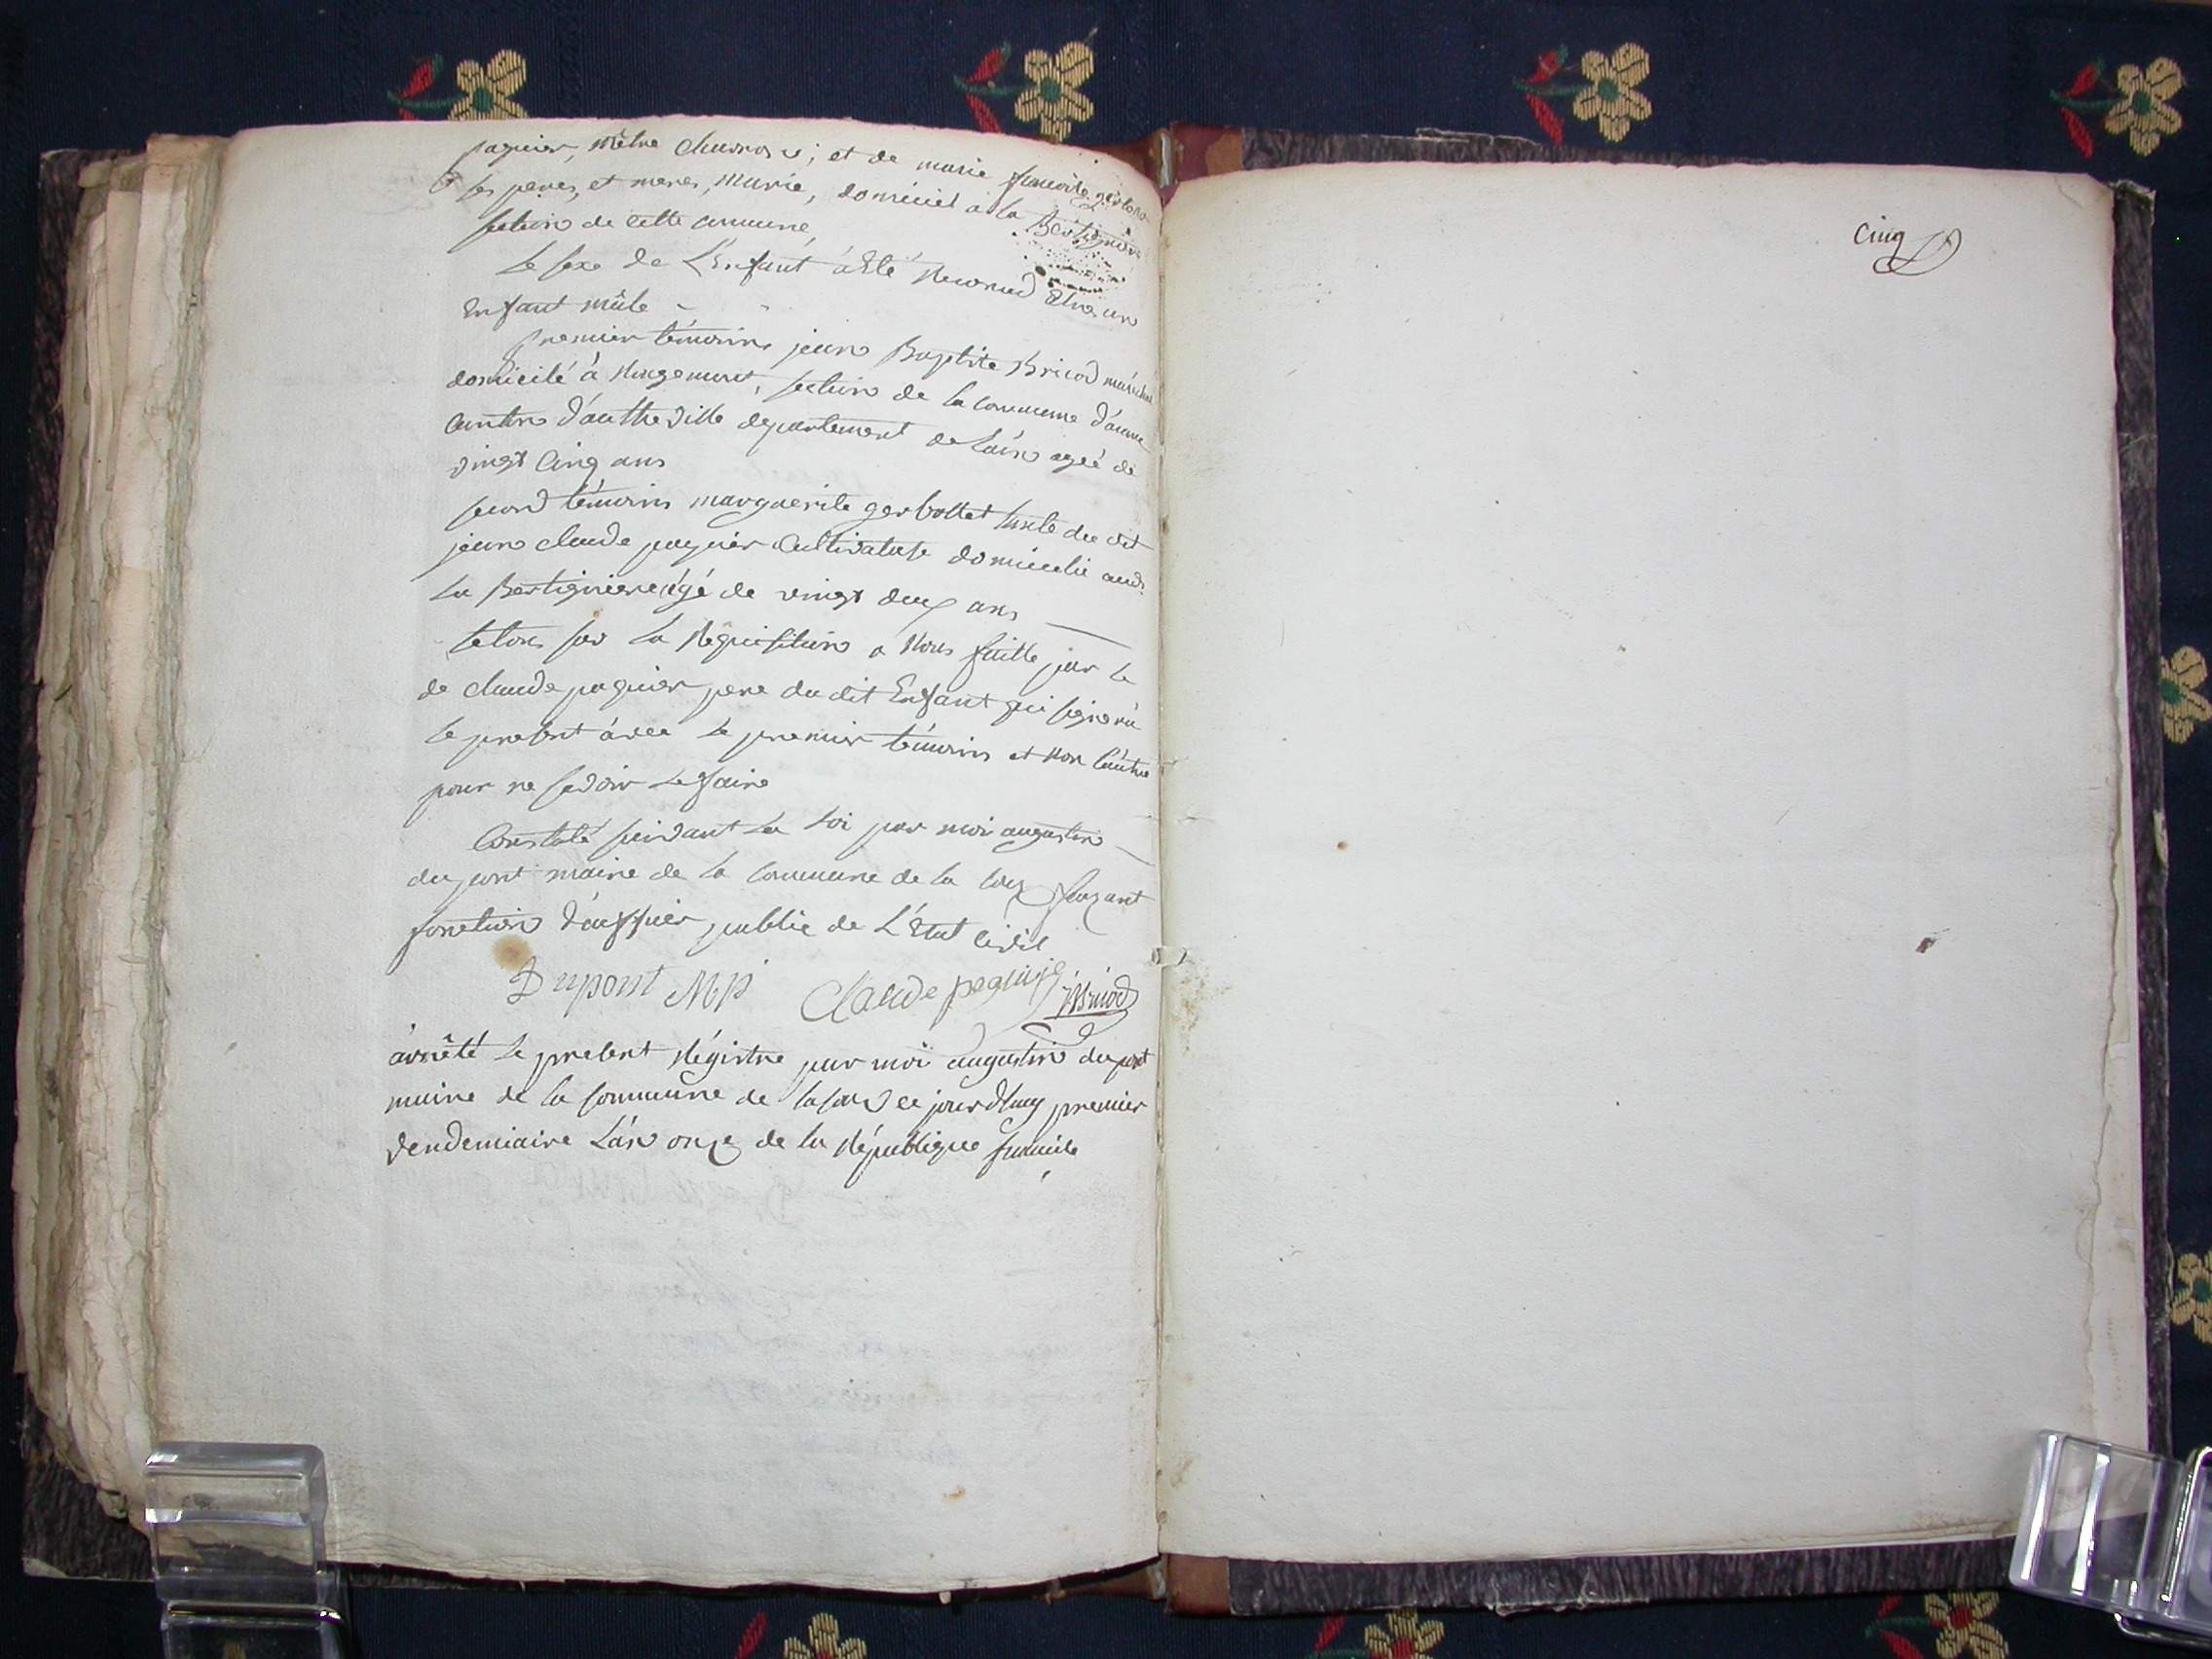 paguier, mêtre charos et de marie
ses peres, et meres, marié, domiciel a la Bertignière
section de cette commune
le sexe de L'Enfant à Eté Reconnud Etre un
Enfant mâle
premier témoins jeans Baptiste Bricod
domicilé à Rougemont, section de la commune
cantons d'autheville departement de L'ains ageé de
vingt Cinq ans
second témoins marguerite gerbottet du dit
jeans claude paguier Cultivatuse domicielié
La Bertigniere égé de vingt deux ans
sur La Requisitions a Nous faitte par le
de claude paguier pere du dit Enfant qui signera
le present avec le premier témoins et non l'autre
pour ne savoir le faire
Constaté suivant La Loi par moi augustin
dupont maire de la commune de la coux faizant
fonctions d'auffier public de L'Etat civil
Dupont Claude paguier Bricod
àrrêté le present Régistre par moi augustin dupont
maire de la commune de ce jourdhuy premier
vendemiaire L'an onze de la République
Cinq